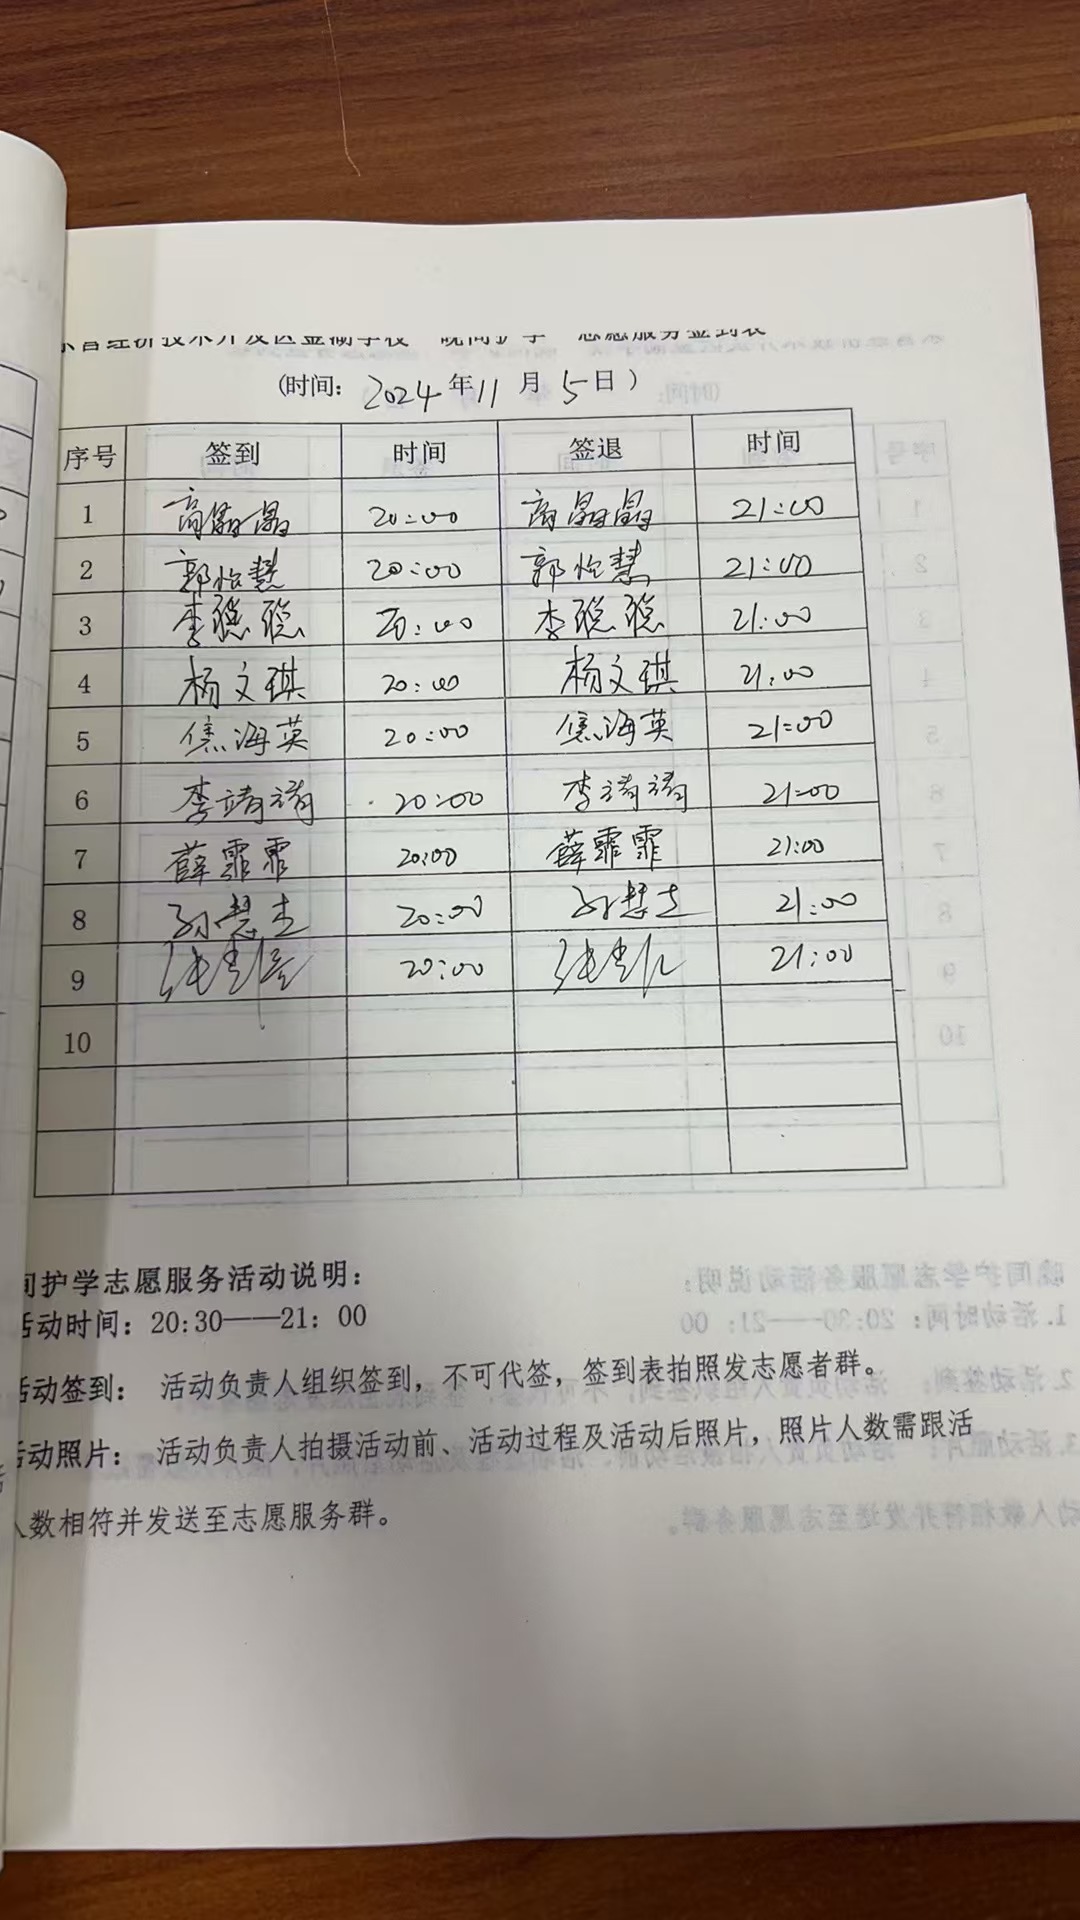 东营经济技术开发区金湖学校"晚间护学"志愿服务签到表
(时间: 2024年11月5日)
序号 签到 时间 签退 时间
1 高晶晶 20:00 高晶晶 21:00
2 郭怡慧 20:00 郭怡慧 21:00
3 李聪聪 20:00 李聪聪 21:00
4 杨文琪 20:00 杨文琪 21:00
5 焦海英 20:00 焦海英 21:00
6 李靖靖 20:00 李靖靖 21:00
7 薛霏霏 20:00 薛霏霏 21:00
8 孙慧杰 20:00 孙慧杰 21:00
9 20:00 21:00
10
间护学志愿服务活动说明:
活动时间: 20:30——21: 00
活动签到: 活动负责人组织签到，不可代签，签到表拍照发志愿者群。
活动照片: 活动负责人拍摄活动前、活动过程及活动后照片，照片人数需跟活
人数相符并发送至志愿服务群。